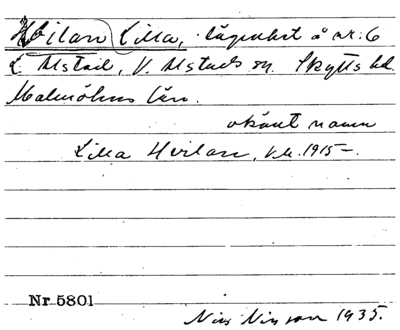 Hvilan Lilla, lägenhet å nr: 6
L. Alstad, V. Alstads sn. Skytts hd.
Malmöhus län.
okänt namn
Lilla Hvilan, k.b. 1915–.
Nr 5801
Nils Nilsson 1935.